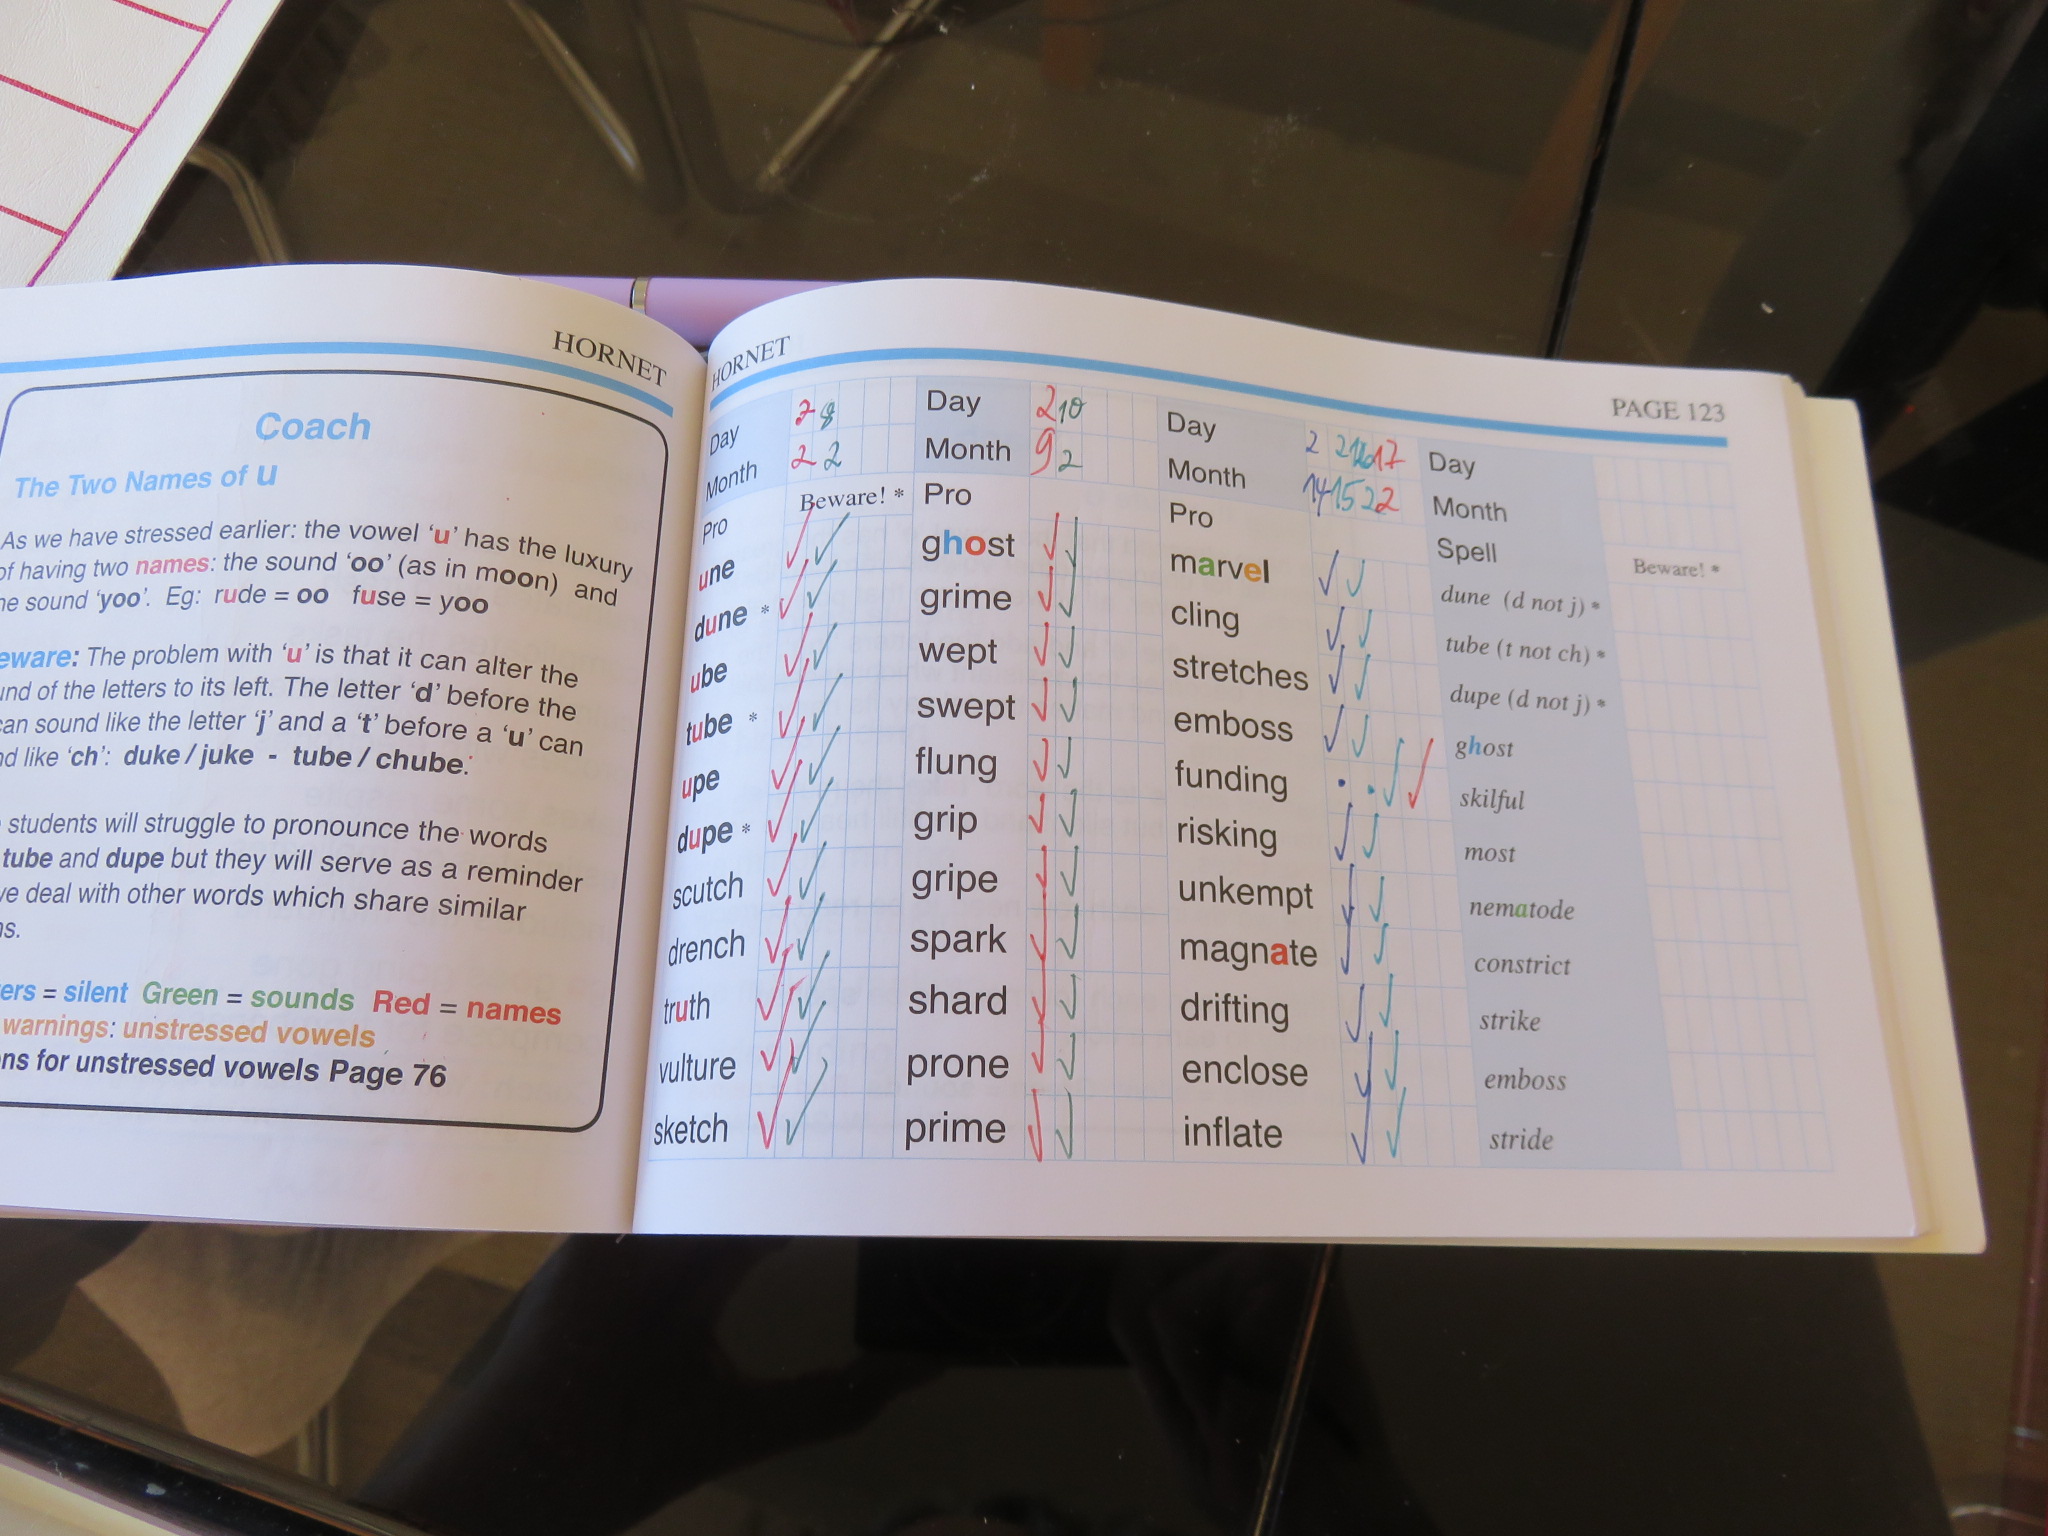 HORNET
Coach
The Two Names of u
As we have stressed earlier: the vowel 'u' has the luxury
of having two names: the sound 'oo' (as in moon) and
he sound 'yoo'. Eg: rude = oo fuse = yoo
eware: The problem with 'u' is that it can alter the
und of the letters to its left. The letter 'd' before the
can sound like the letter 'j' and a 't' before a 'u' can
nd like 'ch': duke / juke - tube / chube.
students will struggle to pronounce the words
tube and dupe but they will serve as a reminder
ve deal with other words which share similar
ns.
ers = silent Green = sounds Red = names
warnings: unstressed vowels
ns for unstressed vowels Page 76
HORNET
PAGE 123
Day 7 8
Month 2 2
Pro Beware! *
une
dune *
ube
tube *
upe
dupe *
scutch
drench
truth
vulture
sketch
Day 2 10
Month 9 2
Pro
ghost
grime
wept
swept
flung
grip
gripe
spark
shard
prone
prime
Day 2 2 17
Month 14 15 2 2
Pro
marvel
cling
stretches
emboss
funding
risking
unkempt
magnate
drifting
enclose
inflate
Day
Month
Spell Beware! *
dune (d not j) *
tube (t not ch) *
dupe (d not j) *
ghost
skilful
most
nematode
constrict
strike
emboss
stride